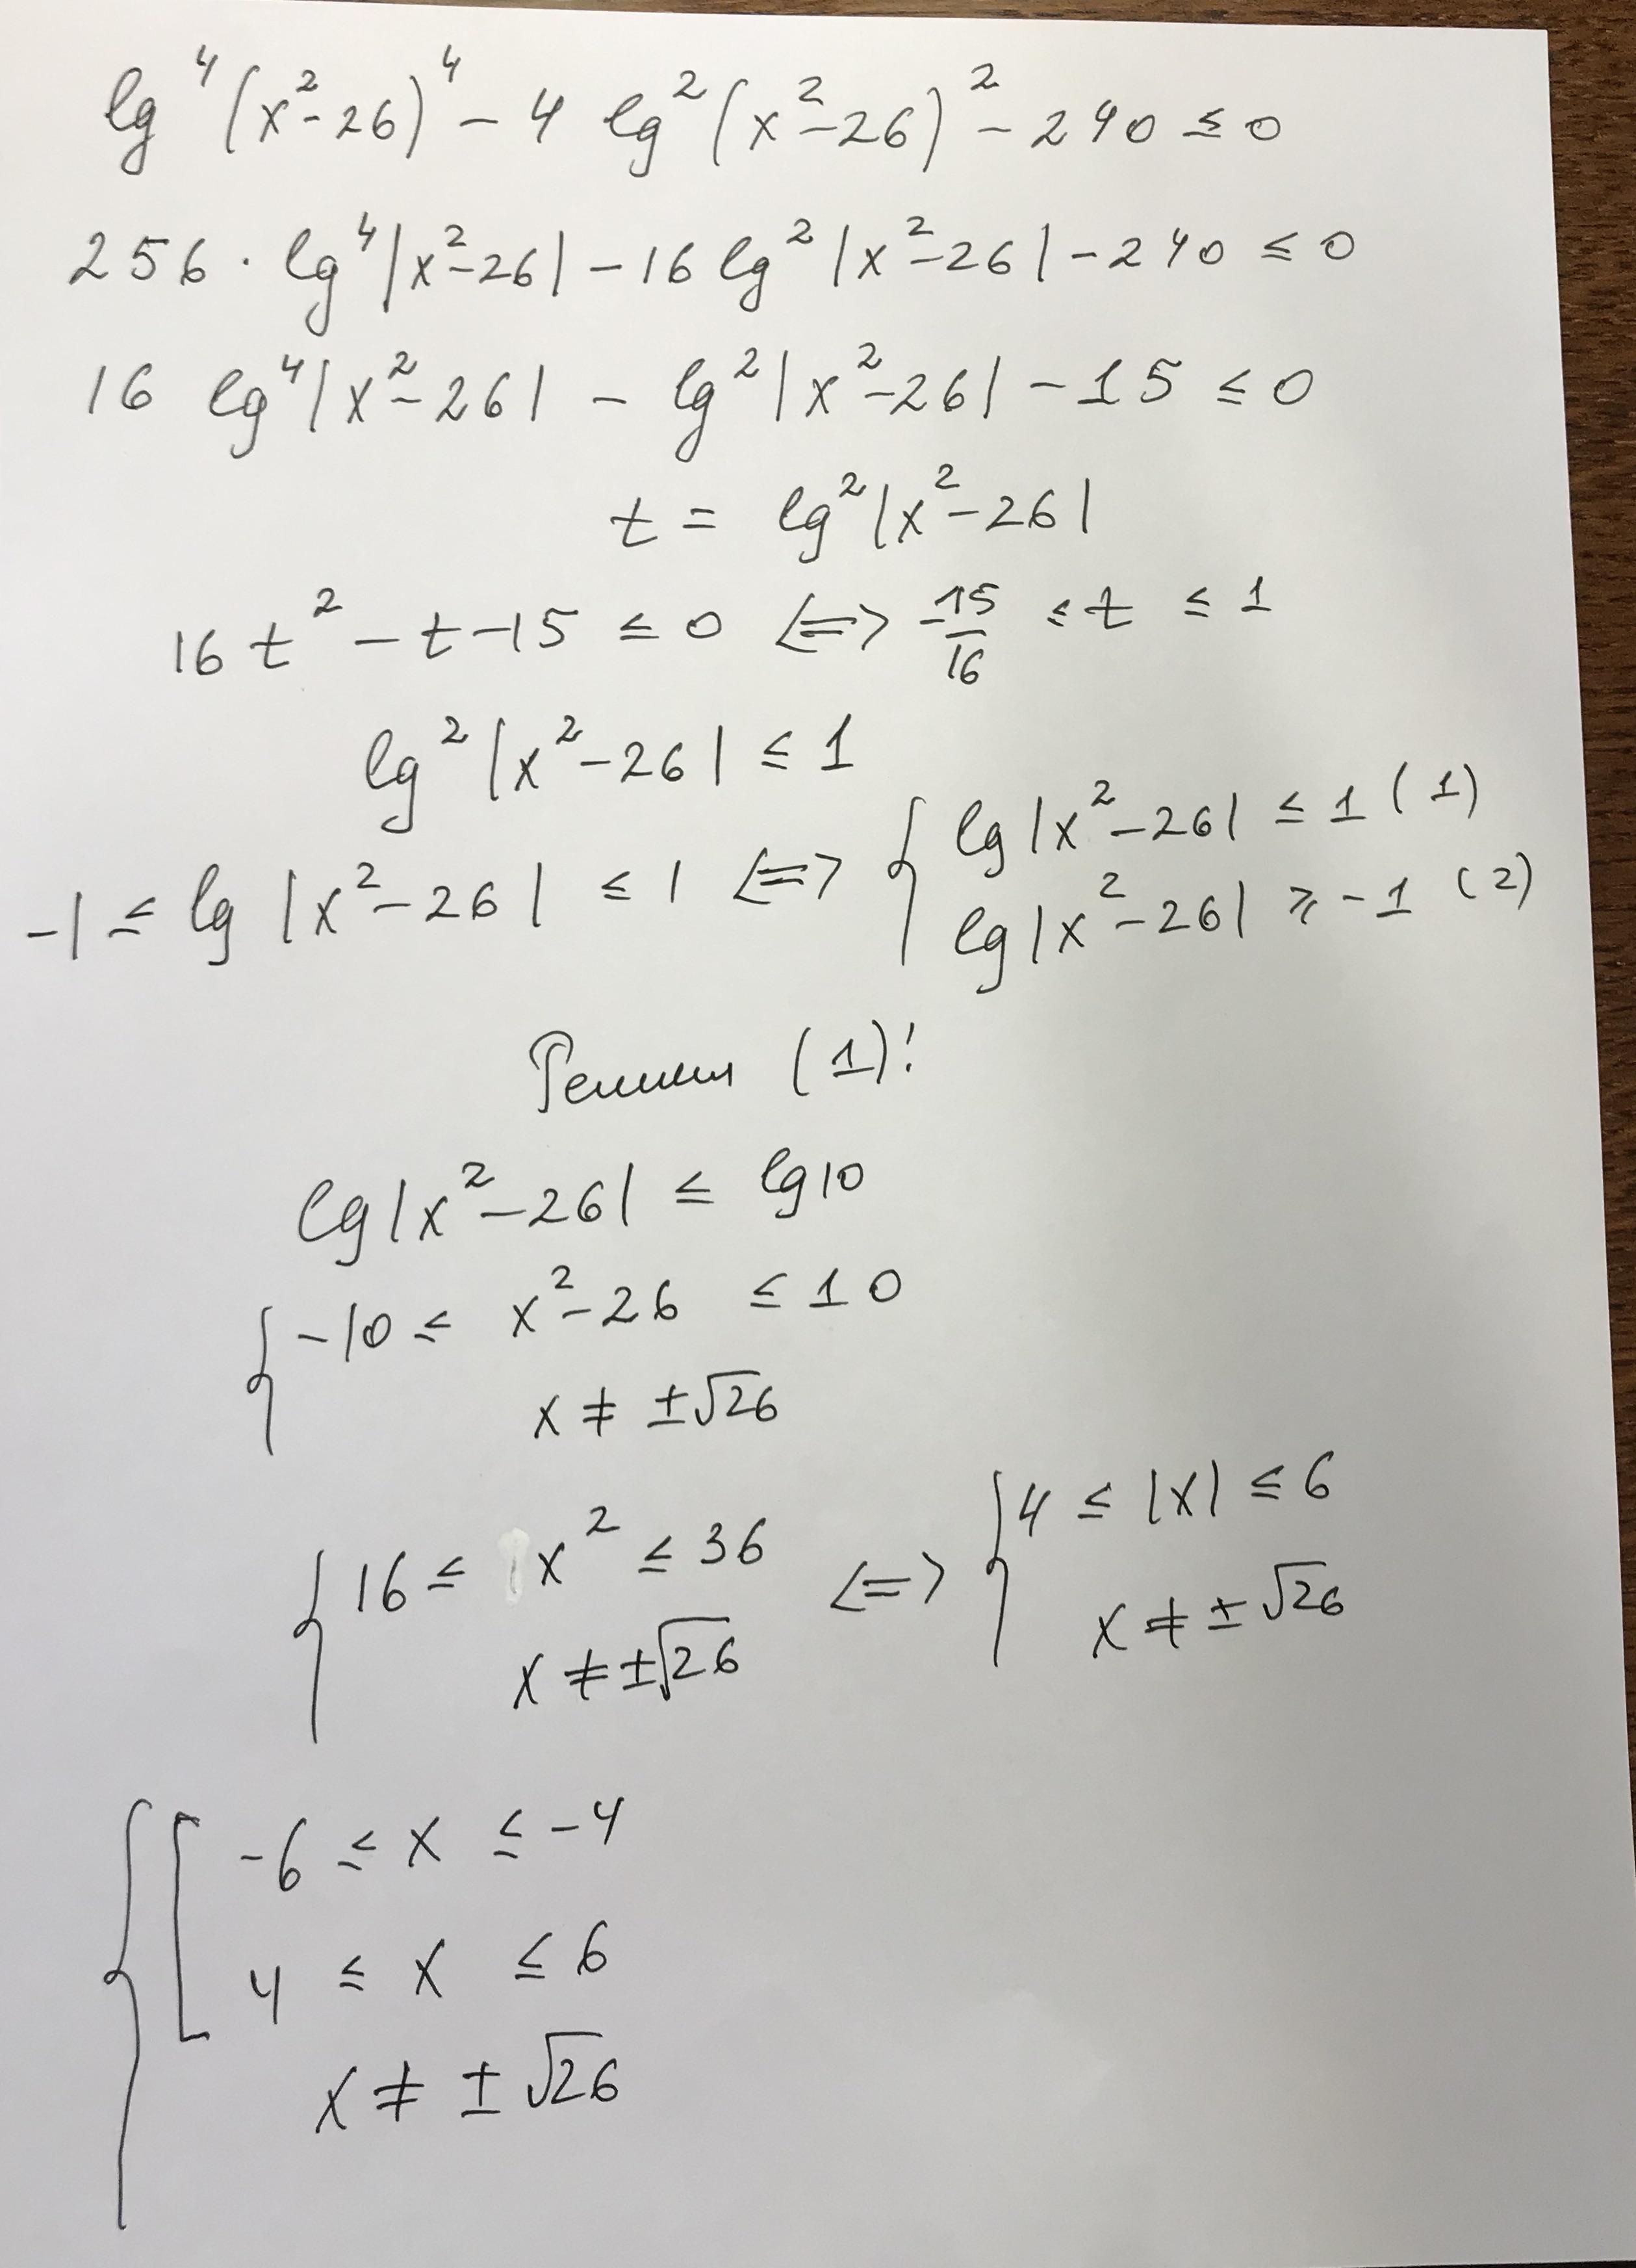 lg⁴(x²-26)⁴ - 4 lg²(x²-26)² - 240 ≤ 0
256 · lg⁴|x²-26| - 16 lg²|x²-26| - 240 ≤ 0
16 lg⁴|x²-26| - lg²|x²-26| - 15 ≤ 0
t = lg²|x²-26|
16t² - t - 15 ≤ 0 <=> -15/16 ≤ t ≤ 1
lg²|x²-26| ≤ 1
-1 ≤ lg|x²-26| ≤ 1 <=> { lg|x²-26| ≤ 1 (1)
lg|x²-26| ≥ -1 (2)
Решим (1):
lg|x²-26| ≤ lg10
{ -10 ≤ x²-26 ≤ 10
x ≠ ±√26
{ 16 ≤ x² ≤ 36 <=> { 4 ≤ |x| ≤ 6
x ≠ ±√26 x ≠ ±√26
{ [ -6 ≤ x ≤ -4
4 ≤ x ≤ 6
x ≠ ±√26